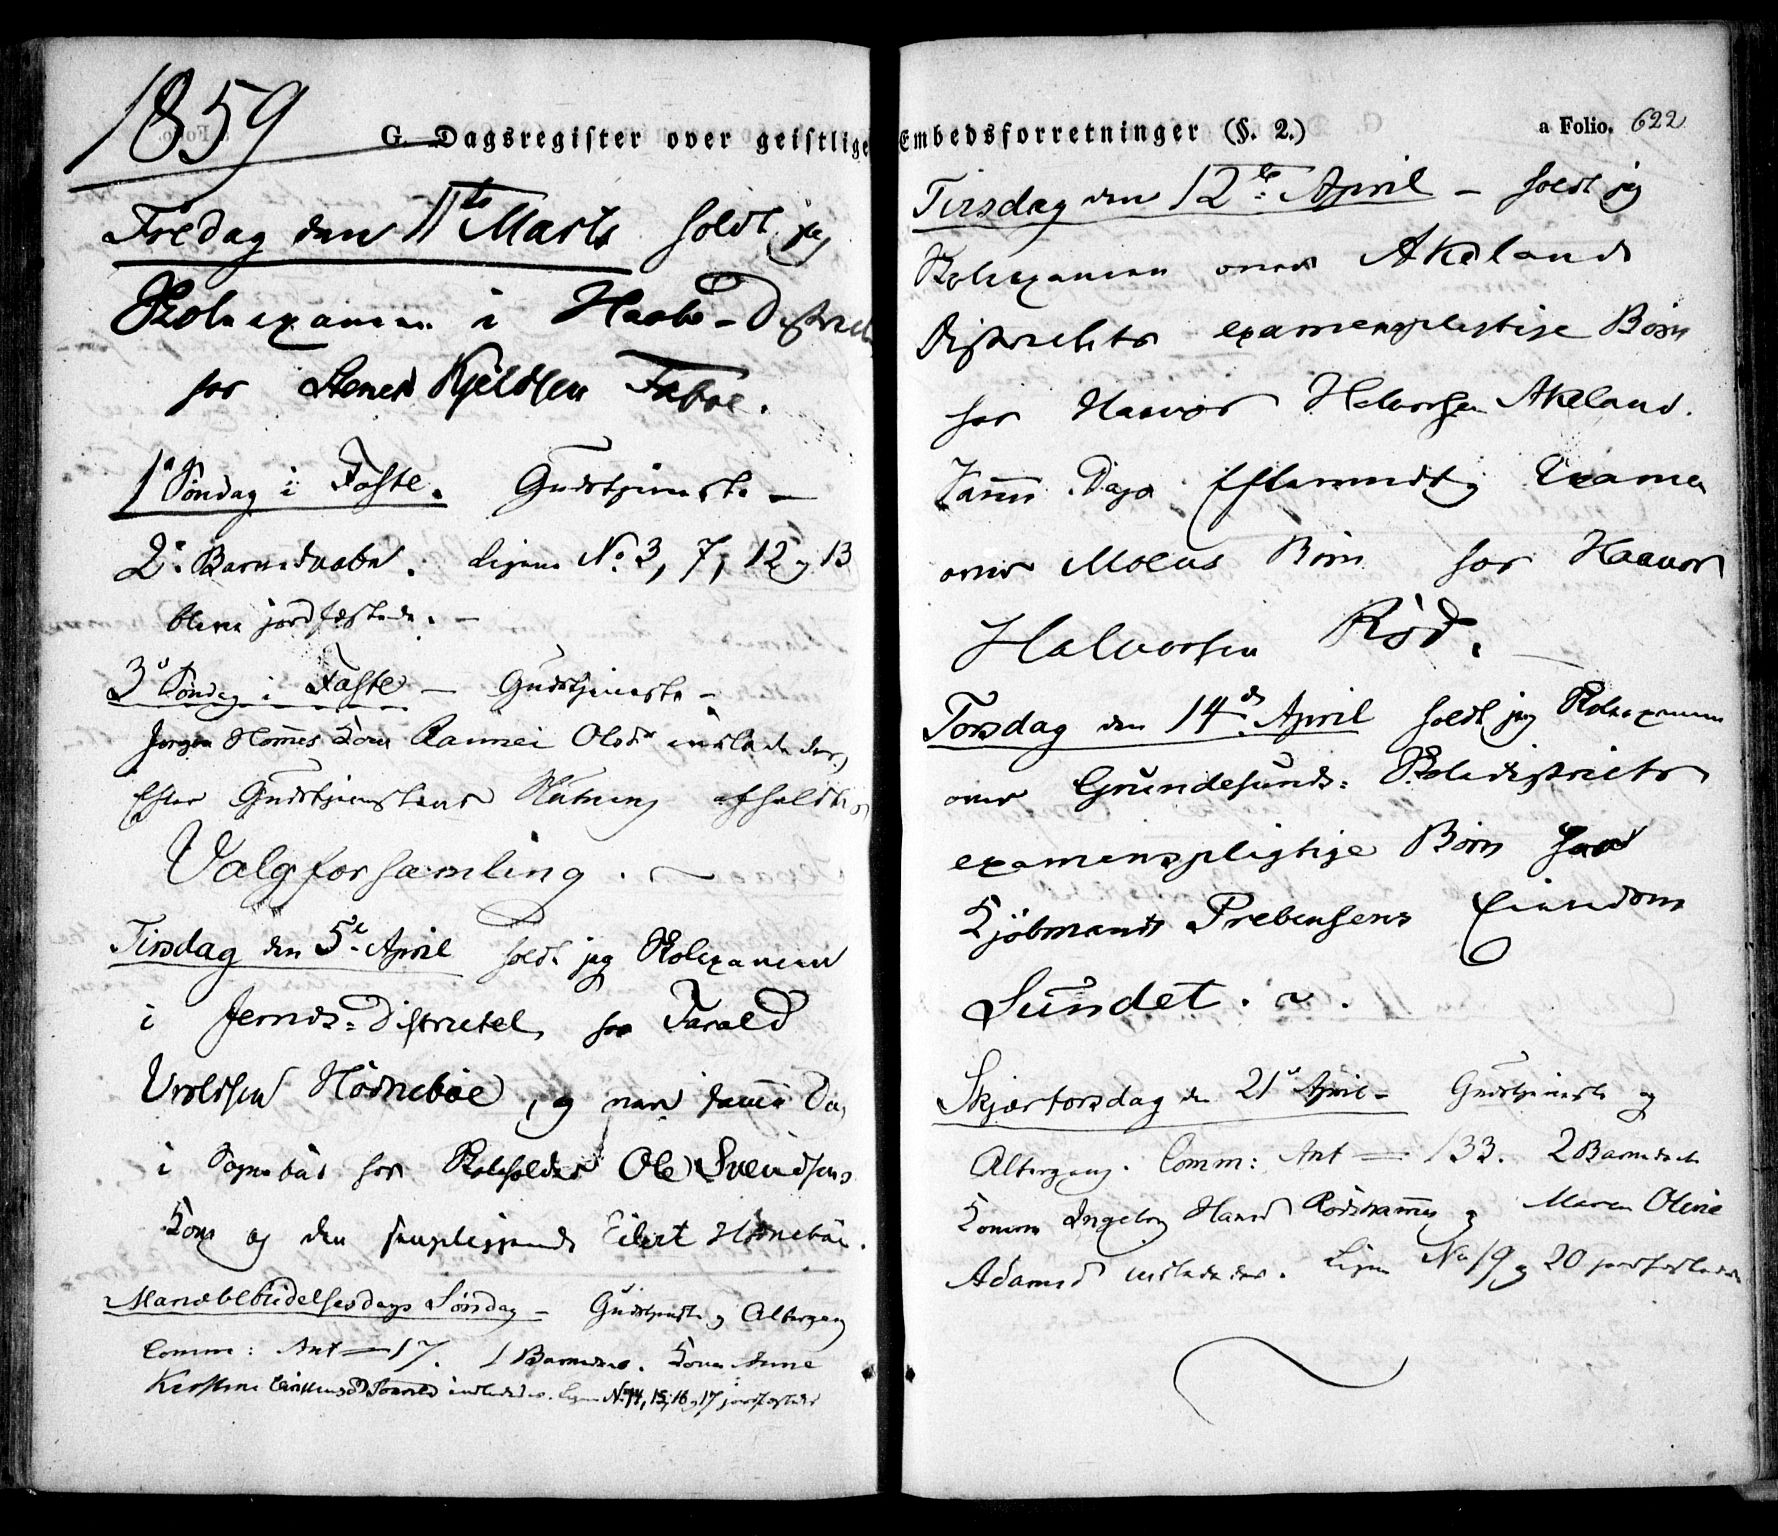 1859
G. Dagsregister over geistlige Embedsforretninger (§. 2.)
a Folio. 622
Fredag den 11te Marts holdt jeg
Skoleexamen i Haabø-District
hos Stener Kjeldsen Fabøe.
1ste Søndag i Faste. Gudstjeneste –
2de Barnedaabe. Ligene No. 3, 7, 12 og 13
bleve jordfæstede. –
3die Søndag i Faste – Gudstjeneste –
Jørgen Hommes Kone Ramnei Olsdr indlededes,
Efter Gudstjenestens Slutning afholdtes
Valgforsamling. –
Tirsdag den 5te April holdt jeg Skolexamen
i Jernæs-Districtet, hos Tarald
Uvoldsen Hödnebøe, og næste samme Dag
i Sognebøe hos Skoleholder Ole Svendsens
Kone og den Eilert Hödnebøe.
Mariæbebudelsesdags Søndag – Gudstjeneste og Altergang
Comm: Ant = 17. 1 Barnedaab. Konen Anne
Kirstine indlededes. Ligene No 14, 15, 16 og 17 jordfæstedes
Tirsdag den 12te April – holdt jeg
Skolexamen over Akeland
Districtets examenspligtige Børn
hos Haavor Halvorsen Akeland.
Samme Dags Eftermiddag Examen
over Molus Børn hos Haavor
Halvorsen Röd.
Torsdag den 14de April holdt jeg Skolexamen
over Grundesunds-Skoledistricts
examenspligtige Børn hos
Kjøbmand Prebensens Eiendom
Sundet. ~.
Skjærtorsdag den 21de April – Gudstjeneste og
Altergang. Comm: Ant = 133. 2 Barnedaabe
Konerne Ingeborg Hansd og Maren Olene
Adamsd indlededes. Ligene No 19 og 20 jordfæstedes